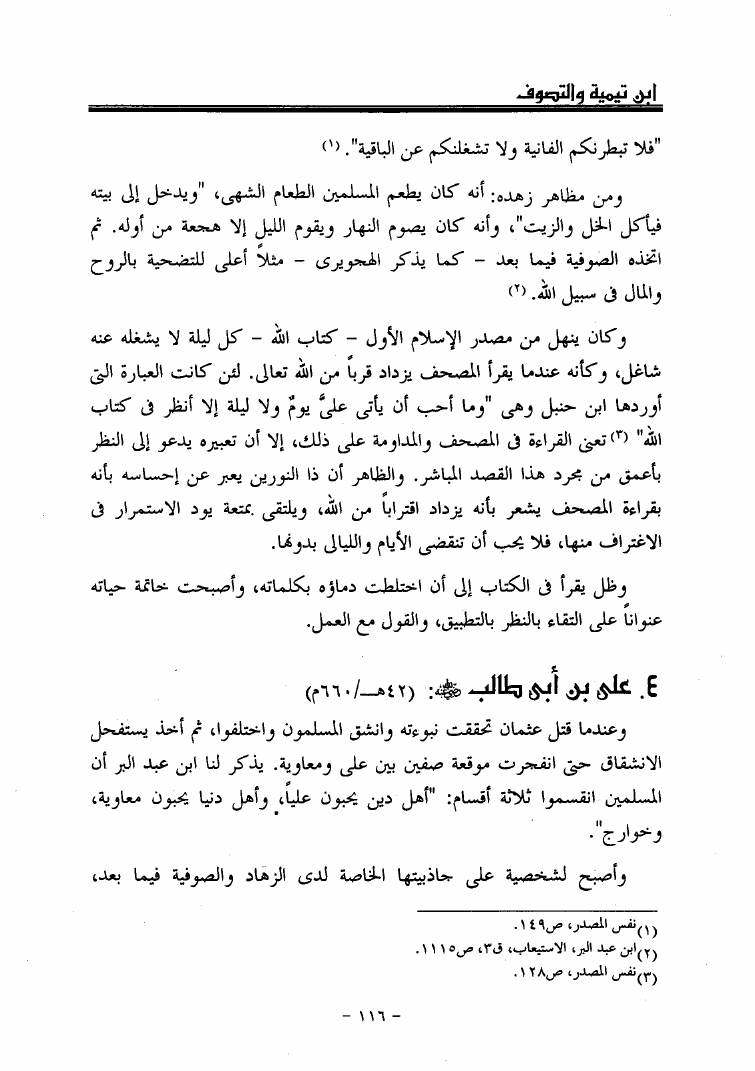 ابن تيمية والتصوف
"فلا تبطرنكم الفانية ولا تشغلنكم عن الباقية". (١)
ومن مظاهر زهده: أنه كان يطعم المسلمين الطعام الشهى، "ويدخل إلى بيته
فيأكل الخل والزيت"، وأنه كان يصوم النهار ويقوم الليل إلا هجعة من أوله. ثم
اتخذه الصوفية فيما بعد – كما يذكر الهجويرى – مثلاً أعلى للتضحية بالروح
والمال فى سبيل الله. (٢)
وكان ينهل من مصدر الإسلام الأول – كتاب الله – كل ليلة لا يشغله عنه
شاغل، وكأنه عندما يقرأ المصحف يزداد قرباً من الله تعالى. لئن كانت العبارة التى
أوردها ابن حنبل وهى "وما أحب أن يأتى علىَّ يومٌ ولا ليلة إلا أنظر فى كتاب
الله" (٣) تعنى القراءة فى المصحف والمداومة على ذلك، إلا أن تعبيره يدعو إلى النظر
بأعمق من مجرد هذا القصد المباشر. والظاهر أن ذا النورين يعبر عن إحساسه بأنه
بقراءة المصحف يشعر بأنه يزداد اقتراباً من الله، ويلتقى بمتعة يود الاستمرار فى
الاغتراف منها، فلا يحب أن تنقضى الأيام والليالى بدونها.
وظل يقرأ فى الكتاب إلى أن اختلطت دماؤه بكلماته، وأصبحت خاتمة حياته
عنواناً على التقاء بالنظر بالتطبيق، والقول مع العمل.
٤. على بن أبى طالب ﷺ: (٤٢هـ/٦٦٠م)
وعندما قتل عثمان تحققت نبوءته وانشق المسلمون واختلفوا، ثم أخذ يستفحل
الانشقاق حتى انفجرت موقعة صفين بين على ومعاوية. يذكر لنا ابن عبد البر أن
المسلمين انقسموا ثلاثة أقسام: "أهل دين يحبون علياً، وأهل دنيا يحبون معاوية،
وخوارج".
وأصبح لشخصية على جاذبيتها الخاصة لدى الزهاد والصوفية فيما بعد،
(١) نفس المصدر، ص١٤٩.
(٢) ابن عبد البر، الاستيعاب، ق٣، ص١١١٥.
(٣) نفس المصدر، ص١٢٨.
– ١١٦ –